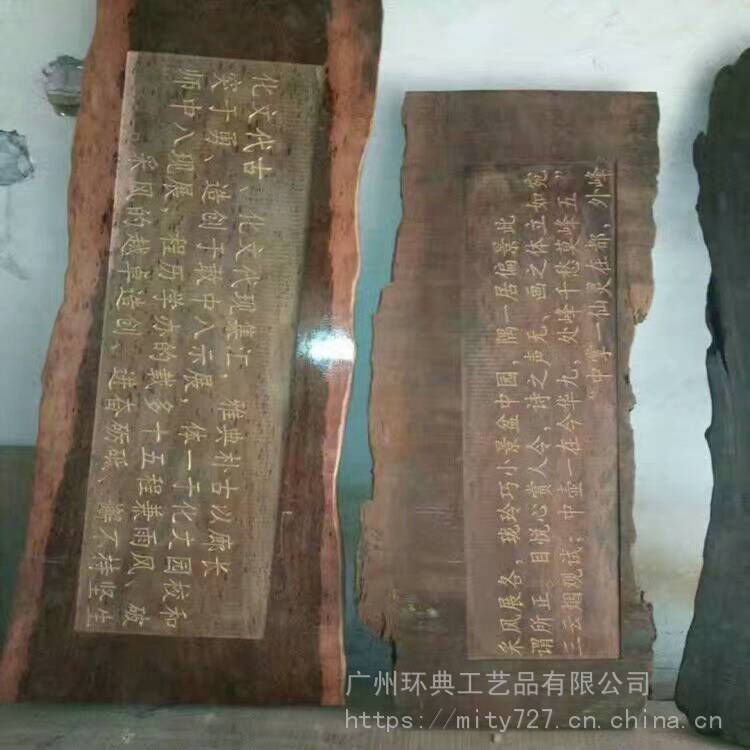 长廊以古朴典雅，汇集现代文化、古代文化
和校园文化于一体，展示八中敢于创造、勇于突
破，风雨兼程五十多载的办学历程，展现八中师
生坚持不懈、砥砺奋进、创造卓越的风采。
此景偏居一隅，园中盆景小巧玲珑，各展风采
宛如立体之画，无声之诗，令人赏心悦目。正所谓
“五峰莫愁千峰处，九华今在一壶中；试观烟云三
峰外，都在灵仙一掌中”
广州环典工艺品有限公司
https://mity727.cn.china.cn